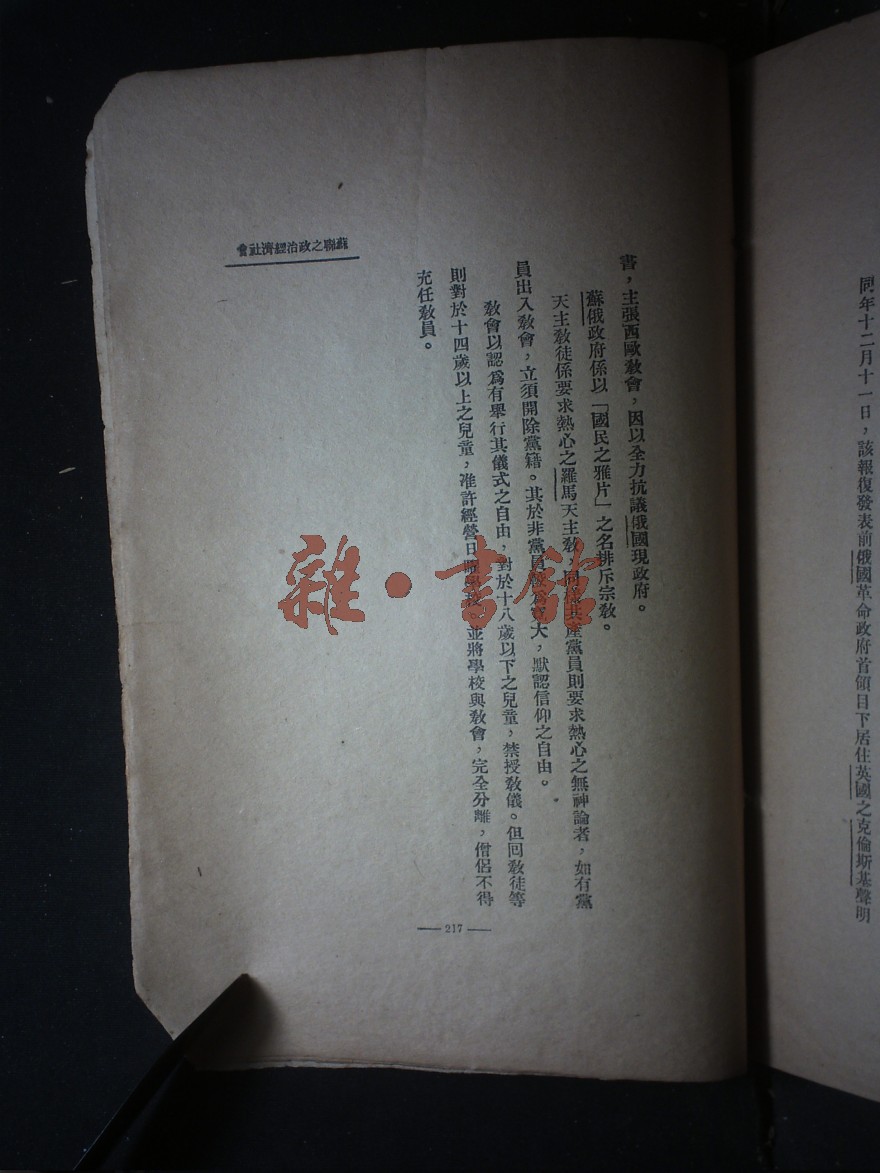 同年十二月十一日，該報復發表前俄國革命政府首領目下居住英國之克倫斯基聲明
書，主張西歐教會，因以全力抗議俄國現政府。
蘇俄政府係以「國民之雅片」之名排斥宗教。
天主教徒係要求熱心之羅馬天主教，同樣共產黨員則要求熱心之無神論者，如有黨
員出入教會，立須開除黨籍。其於非黨員大，默認信仰之自由。
教會以認爲有舉行其儀式之自由，對於十八歲以下之兒童，禁授教儀。但回教徒等
則對於十四歲以上之兒童，准許經營日曜學校，並將學校與教會，完全分離，僧侶不得
充任教員。
蘇聯之政治經濟社會
— 217 —
雜·書館